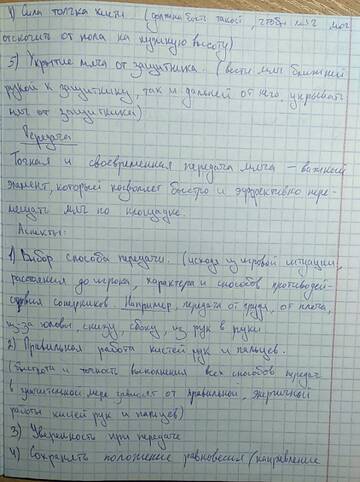 4) Сила толчка кисти (должна быть такой чтобы мяч мог
отскочить от пола на нужную высоту)
5) Укрытие мяча от защитника. (вести мяч ближней
рукой к защитнику, так и дальней от него, укрывать
мяч от защитника)
Передача
Точная и своевременная передача мяча – важный
элемент, который позволяет быстро и эффективно пере-
мещать мяч по площадке.
Аспекты:
1) Выбор способа передачи. (исходя из игровой ситуации,
расстояния до игрока, характера и способов противодей-
ствия соперников. Например, передачи от груди, от плеча,
из-за головы, снизу, сбоку, из рук в руки
2) Правильная работа кистей рук и пальцев.
(быстрота и точность выполнения всех способов передач
в значительной мере зависят от правильной, энергичной
работы кистей рук и пальцев)
3) Уверенность при передаче
4) Сохранять положение равновесия (направление